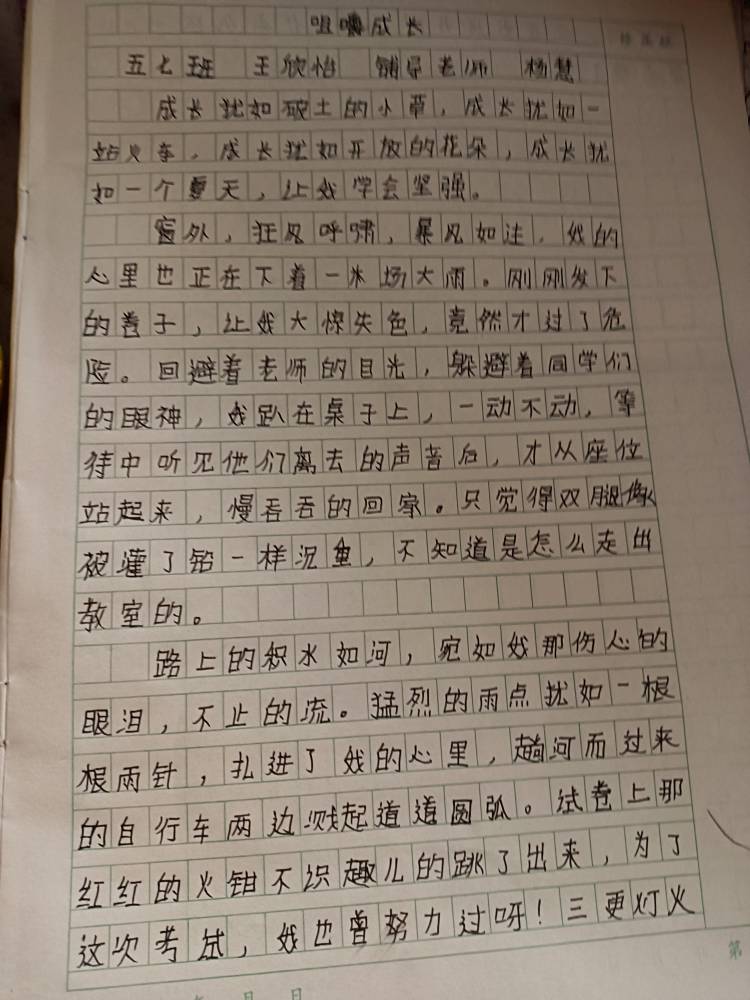 咀嚼成长
五七班 王欣怡 辅导老师 杨慧
成长犹如破土的小草，成长犹如一
站火车，成长犹如开放的花朵，成长犹
如一个夏天，让我学会坚强。
窗外，狂风呼啸，暴风如注，我的
心里也正在下着一米场大雨。刚刚发下
的卷子，让我大惊失色，竟然才过了危
险。回避着老师的目光，躲避着同学们
的眼神，我趴在桌子上，一动不动，等
待中听见他们离去的声音后，才从座位
站起来，慢吞吞的回家。只觉得双腿像
被灌了铅一样沉重，不知道是怎么走出
教室的。
路上的积水如河，宛如我那伤心的
眼泪，不止的流。猛烈的雨点犹如一根
根雨针，扎进了我的心里，趟河而过来
的自行车两边溅起道道圆弧。试卷上那
红红的火钳不识趣儿的跳了出来，为了
这次考试，我也曾努力过呀！三更灯火
第
月 日